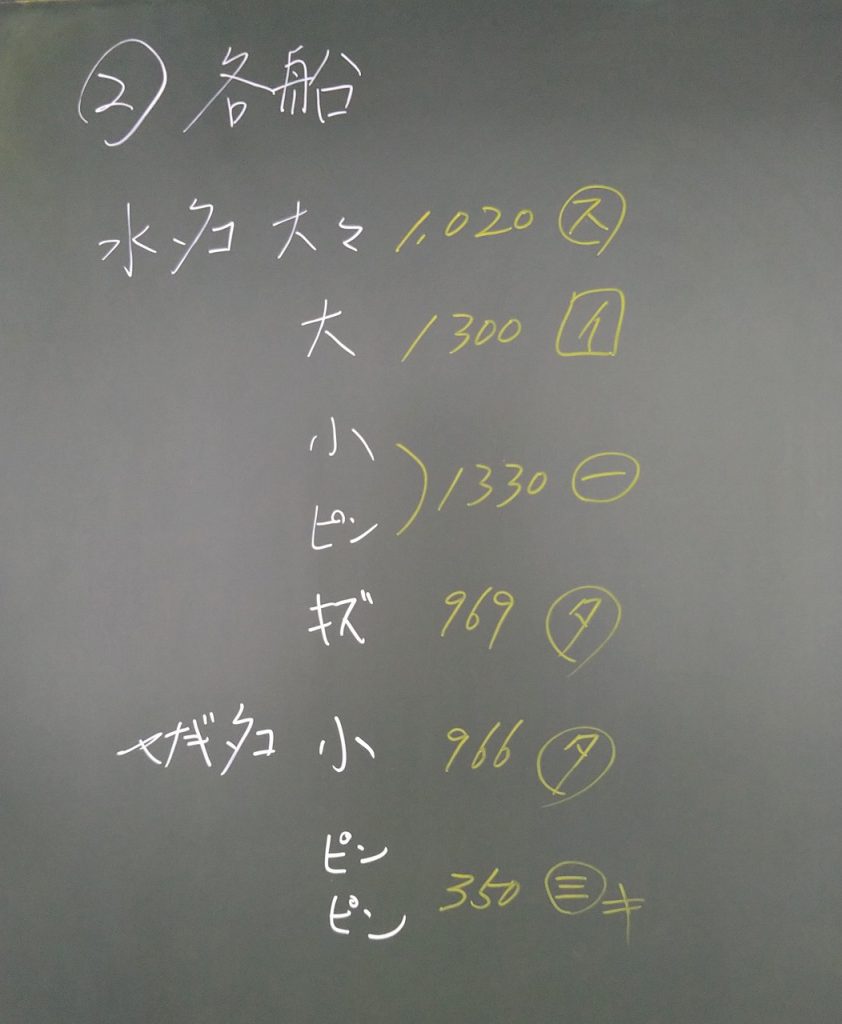 ② 各船
水タコ 大々 1,020 ㋜
大 1300 イ
小
ピン
1330 ㊀
キズ 969 ㋟
ヤナギタコ 小 966 ㋟
ピン
ピン
350 ㊂キ